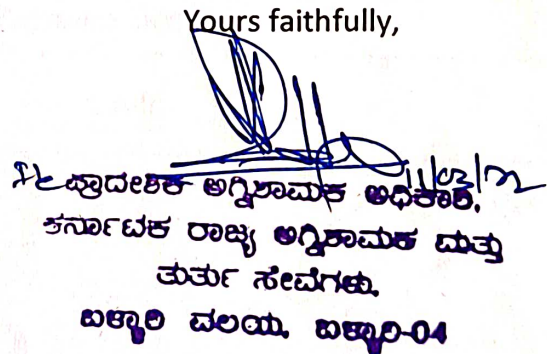 Yours faithfully,
11/03/22
ಪ್ರಾದೇಶಿಕ ಅಗ್ನಿಶಾಮಕ ಅಧಿಕಾರಿ,
ಕರ್ನಾಟಕ ರಾಜ್ಯ ಅಗ್ನಿಶಾಮಕ ಮತ್ತು
ತುರ್ತು ಸೇವೆಗಳು.
ಬಳ್ಳಾರಿ ವಲಯ, ಬಳ್ಳಾರಿ-04